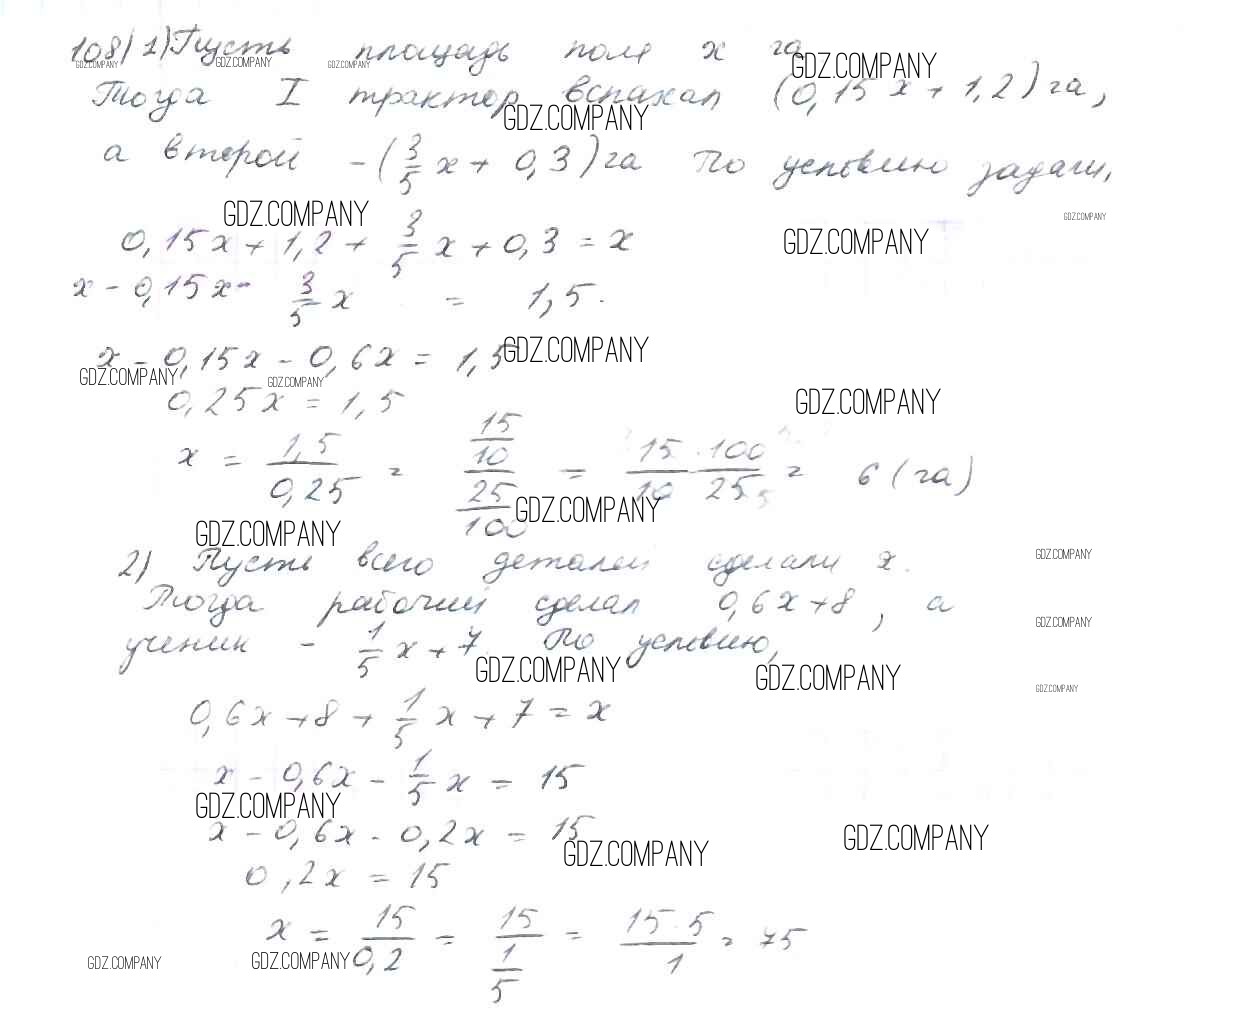 108) 1) Пусть площадь поля x га
GDZ.COMPANY GDZ.COMPANY GDZ.COMPANY GDZ.COMPANY
Тогда I трактор вспахал (0,15x + 1,2) га,
GDZ.COMPANY
а второй - (3/5 x + 0,3) га По условию задачи,
GDZ.COMPANY GDZ.COMPANY
0,15x + 1,2 + 3/5 x + 0,3 = x
GDZ.COMPANY
x - 0,15x - 3/5 x = 1,5.
x - 0,15x - 0,6x = 1,5
GDZ.COMPANY
GDZ.COMPANY GDZ.COMPANY
0,25x = 1,5
GDZ.COMPANY
x = 1,5/0,25 = 15/10 / 25/100 = 15/10 · 100/25 = 6 (га)
GDZ.COMPANY
GDZ.COMPANY
2) Пусть всего деталей сделали x.
GDZ.COMPANY
Тогда рабочий сделал 0,6x + 8, а
GDZ.COMPANY
ученик - 1/5 x + 7. По условию,
GDZ.COMPANY GDZ.COMPANY GDZ.COMPANY
0,6x + 8 + 1/5 x + 7 = x
x - 0,6x - 1/5 x = 15
GDZ.COMPANY
x - 0,6x - 0,2x = 15
GDZ.COMPANY GDZ.COMPANY
0,2x = 15
x = 15/0,2 = 15 / 1/5 = 15·5/1 = 75
GDZ.COMPANY GDZ.COMPANY